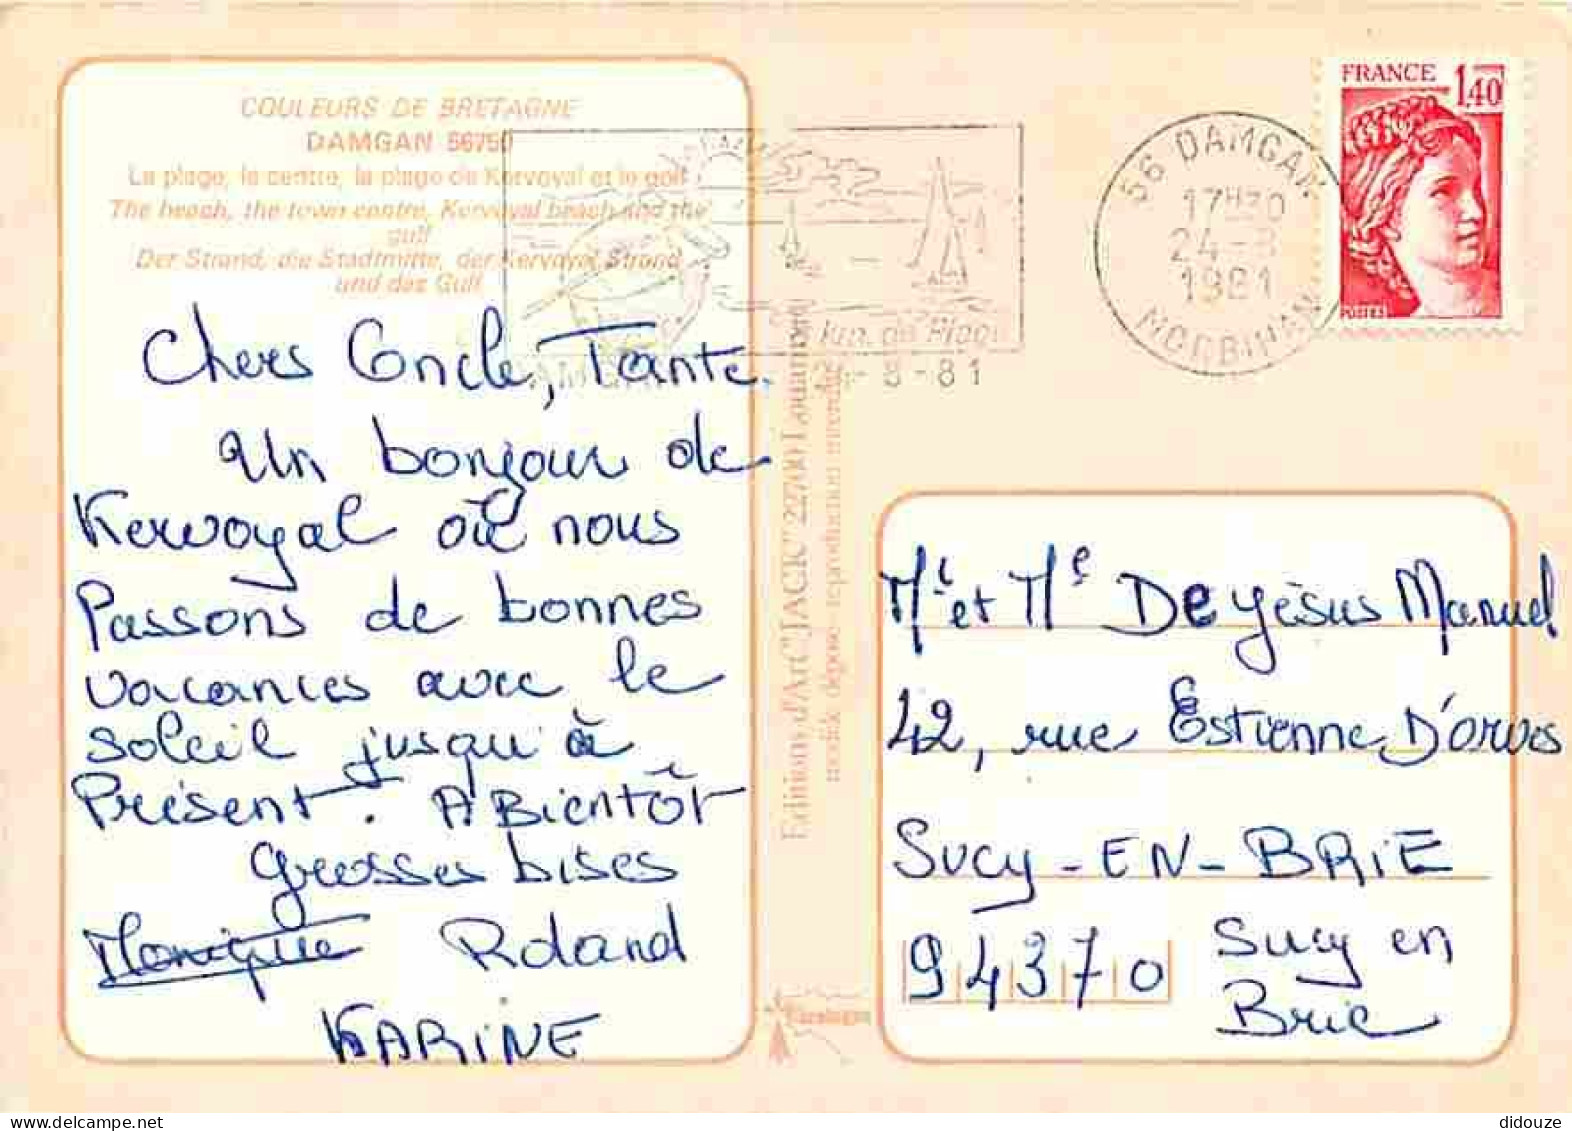 COULEURS DE BRETAGNE
DAMGAN 56750
La plage, le centre, la plage de Kervoyal et le golf
The beach, the town centre, Kervoyal beach and the
gulf
Der Strand, die Stadtmitte, der Kervoyal Strand
und das Gulf
Chers Oncle, Tante.
Un bonjour de
Kervoyal où nous
Passons de bonnes
vacances avec le
soleil jusqu'à
Présent. A Bientôt
Grosses bises
Monique Roland
KARINE
Editions d'Art "JACK" 22700 Louannec
modèle déposé - reproduction interdite
km de Plage
24-8-81
56 DAMGAN
17H30
24-8
1981
MORBIHAN
FRANCE 1,40
POSTES
Mr et Me De Jésus Manuel
42, rue Estienne D'orves
Sucy-EN-BRIE
94370 Sucy en
Brie
didouze